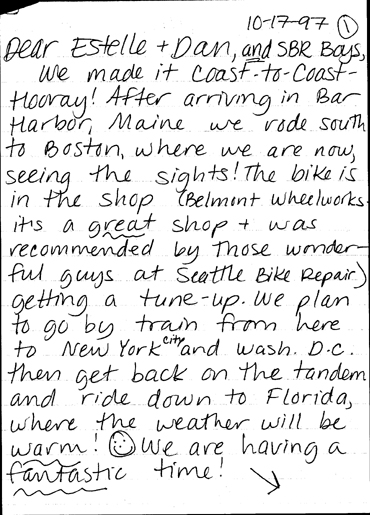 10-17-97 1
Dear Estelle + Dan, and SBR Boys,
We made it Coast-to-Coast-
Hooray! After arriving in Bar
Harbor, Maine we rode south
to Boston, where we are now,
seeing the sights! The bike is
in the shop (Belmont Wheelworks-
it's a great shop + was
recommended by those wonder-
ful guys at Seattle Bike Repair)
getting a tune-up. We plan
to go by train from here
to New York City and Wash. D.C.
then get back on the tandem
and ride down to Florida,
where the weather will be
warm! We are having a
fantastic time!